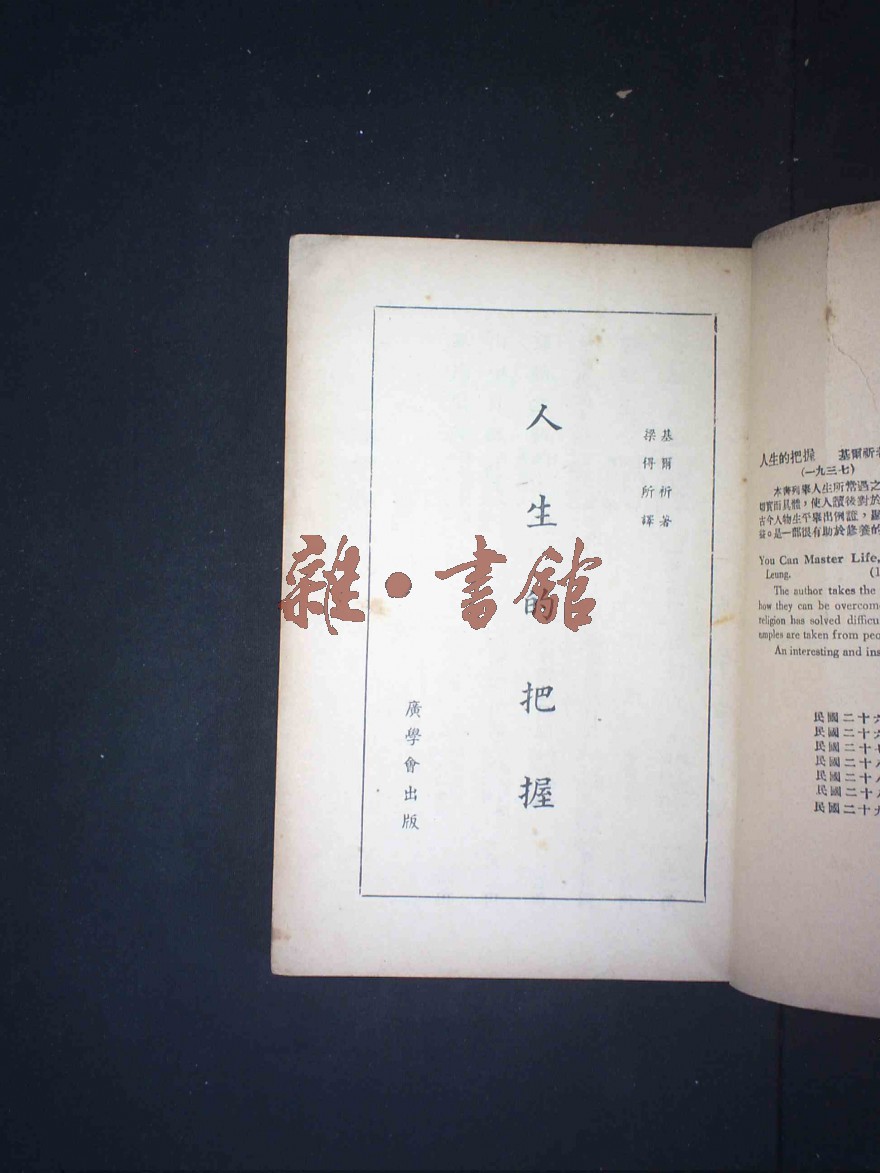 基爾祈著
梁得所譯
人生的把握
廣學會出版
雜·書館
人生的把握 基爾祈
(一九三七)
本書列舉人生所常遇之
切實而具體，使人讀後對於
古今人物生平舉出例證，
益。是一部很有助於修養的
You Can Master Life,
Leung.
The author takes the
how they can be overcom
religion has solved difficu
amples are taken from peo
An interesting and ins
民國二十六
民國二十六
民國二十七
民國二十八
民國二十八
民國二十八
民國二十九